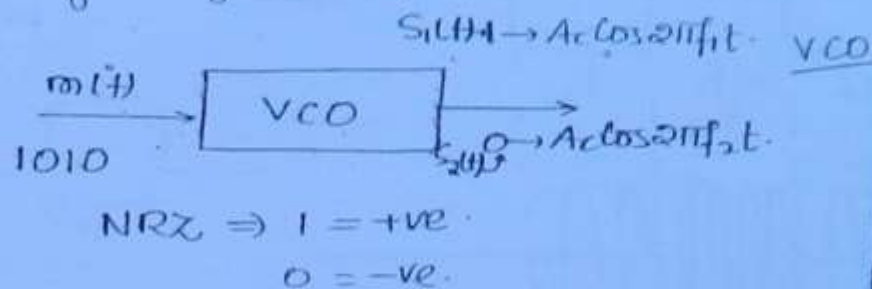 S₁(t) 1 → Ac Cos2πf₁t. VCO
m(t)
VCO
1010
S₂(t) 0 → Ac Cos2πf₂t.
NRZ ⇒ 1 = +ve.
0 = -ve.